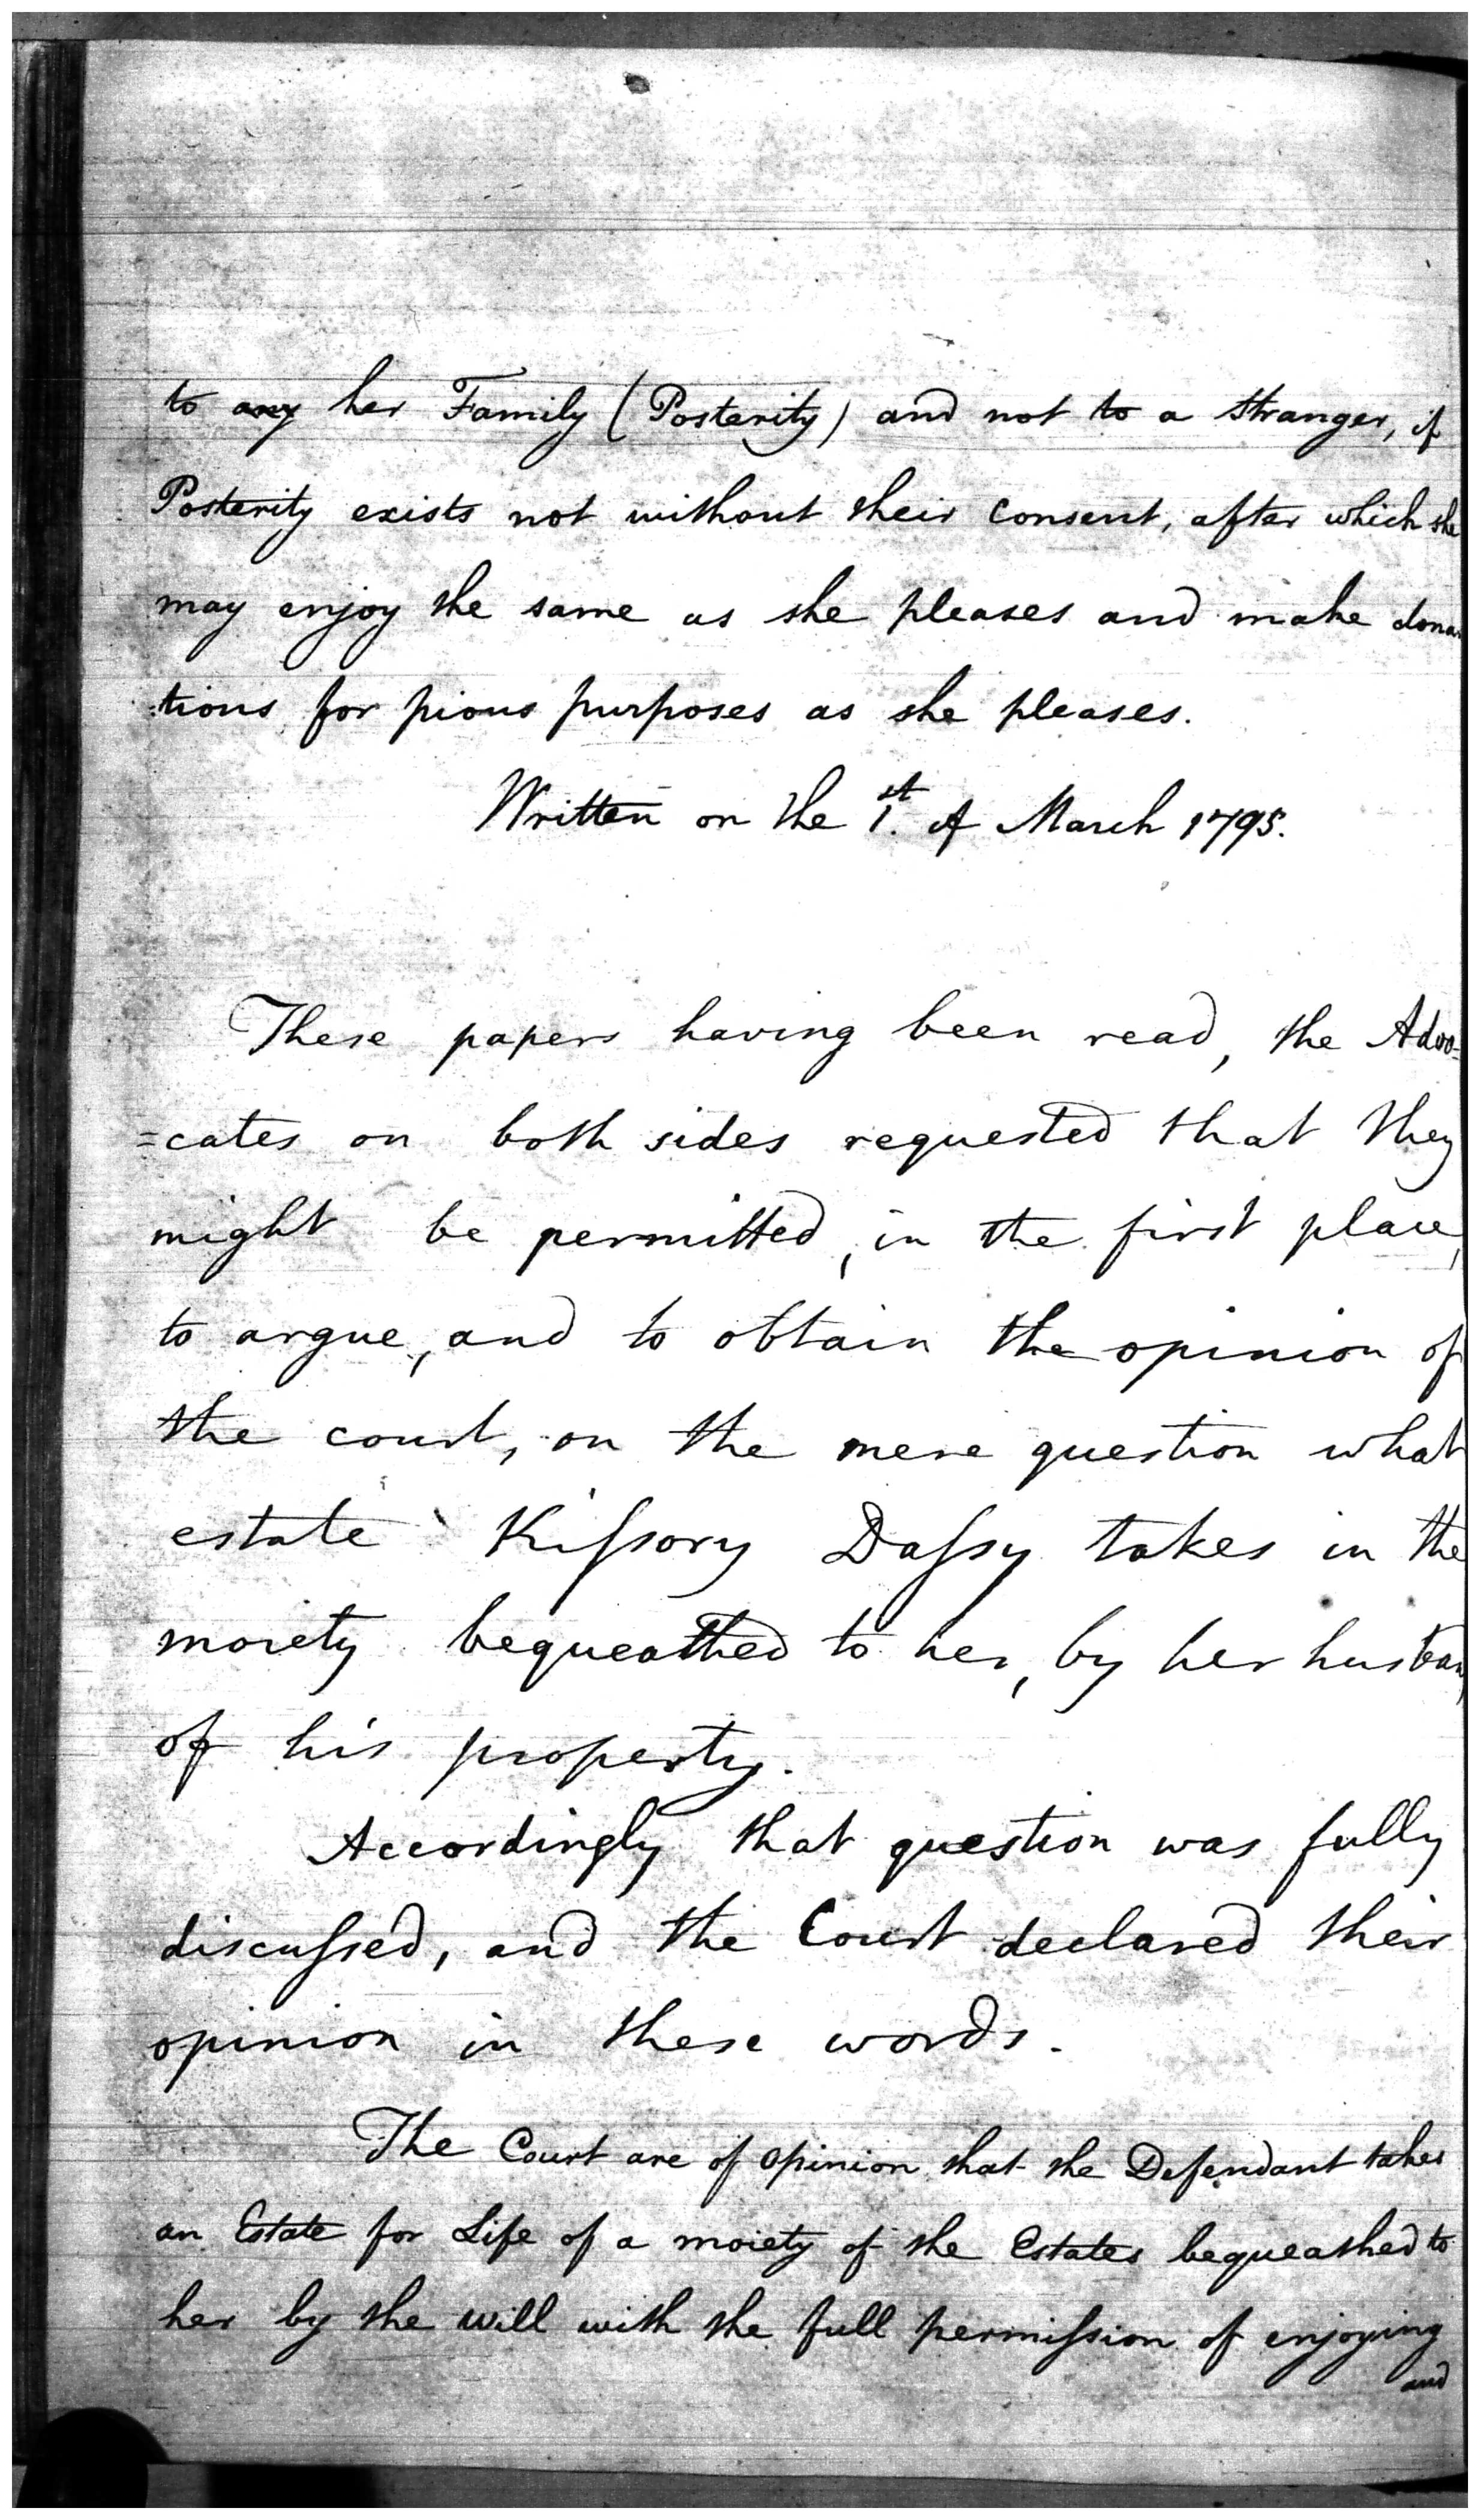 to any her Family (Posterity) and not to a stranger, if
Posterity exists not without their consent, after which she
may enjoy the same as she pleases and make dona
:tions for pious purposes as she pleases.
Written on the 1.st of March 1795.
These papers having been read, the Advo=
=cates on both sides requested that they
might be permitted, in the first place,
to argue, and to obtain the opinion of
the court, on the mere question what
estate Kiſsory Daſsy takes in the
moiety bequeathed to her, by her husban
of his property.
Accordingly that question was fully
discuſsed, and the Court declared their
opinion in these words.
The Court are of opinion that the Defendant takes
an Estate for Life of a moiety of the Estates bequeathed to
her by the will with the full permiſsion of enjoying
and